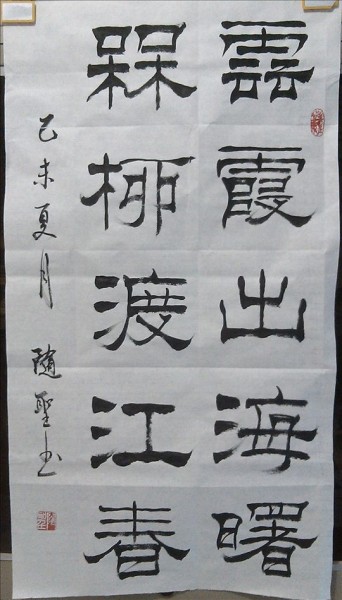 雲霞出海曙
槑柳渡江春
己未夏月 隨聖书